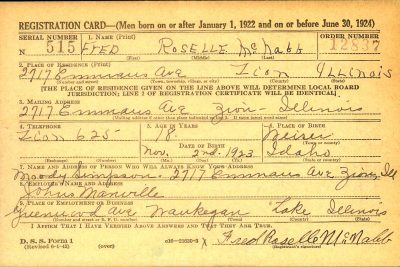 REGISTRATION CARD—(Men born on or after January 1, 1922 and on or before June 30, 1924)
SERIAL NUMBER 1. NAME (Print) ORDER NUMBER
N 515 FRED ROSELLE McNabb 12837
(First) (Middle) (Last)
2. PLACE OF RESIDENCE (Print)
2717 Emmaus Ave Zion Illinois
(Number and street) (Town, township, village, or city) (County) (State)
[THE PLACE OF RESIDENCE GIVEN ON THE LINE ABOVE WILL DETERMINE LOCAL BOARD
JURISDICTION; LINE 2 OF REGISTRATION CERTIFICATE WILL BE IDENTICAL]
3. MAILING ADDRESS
2717 Emmaus Ave Zion Illinois
[Mailing address if other than place indicated on line 2. If same insert word same]
4. TELEPHONE 5. AGE IN YEARS 6. PLACE OF BIRTH
Zion 625 18
DATE OF BIRTH
Nov. 2nd. 1923 Idaho
(Exchange) (Number) (Mo.) (Day) (Yr.) (State or country)
7. NAME AND ADDRESS OF PERSON WHO WILL ALWAYS KNOW YOUR ADDRESS
Moody Simpson. 2717 Emmaus Ave Zion, Ill
8. EMPLOYER'S NAME AND ADDRESS
Johns Manville
9. PLACE OF EMPLOYMENT OR BUSINESS
Greenwood Ave Waukegan Lake Illinois
(Number and street or R. F. D. number) (Town) (County) (State)
I AFFIRM THAT I HAVE VERIFIED ABOVE ANSWERS AND THAT THEY ARE TRUE.
D. S. S. Form 1
Fred Roselle McNabb